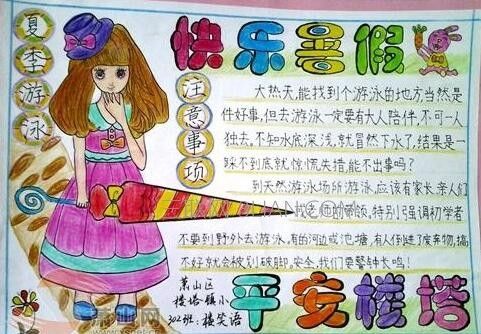 夏季游泳
快乐暑假
注意事项
大热天,能找到个游泳的地方当然是
件好事,但去游泳一定要有大人陪伴,不可一人
独去,不知水底深浅,就冒然下水了,结果是一
踩不到底就惊慌失措,能不出事吗?
到天然游泳场所游泳,应该有家长、亲人们
的带领,特别强调初学者
不要到野外去游泳,有的河边或池塘,有人倒进了废弃物,搞
不好就会被划破脚。安全,我们要警钟长鸣!
萧山区
楼塔镇小
302班:楼笑语
平安楼塔